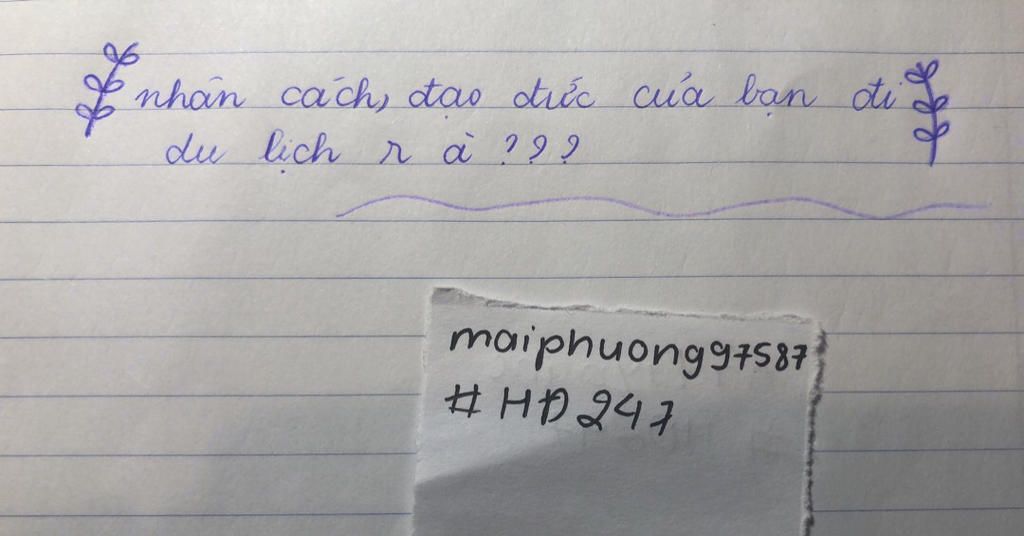 nhân cách, đạo đức của bạn đi
du lịch r à ???
maiphuong97587
#HĐ247